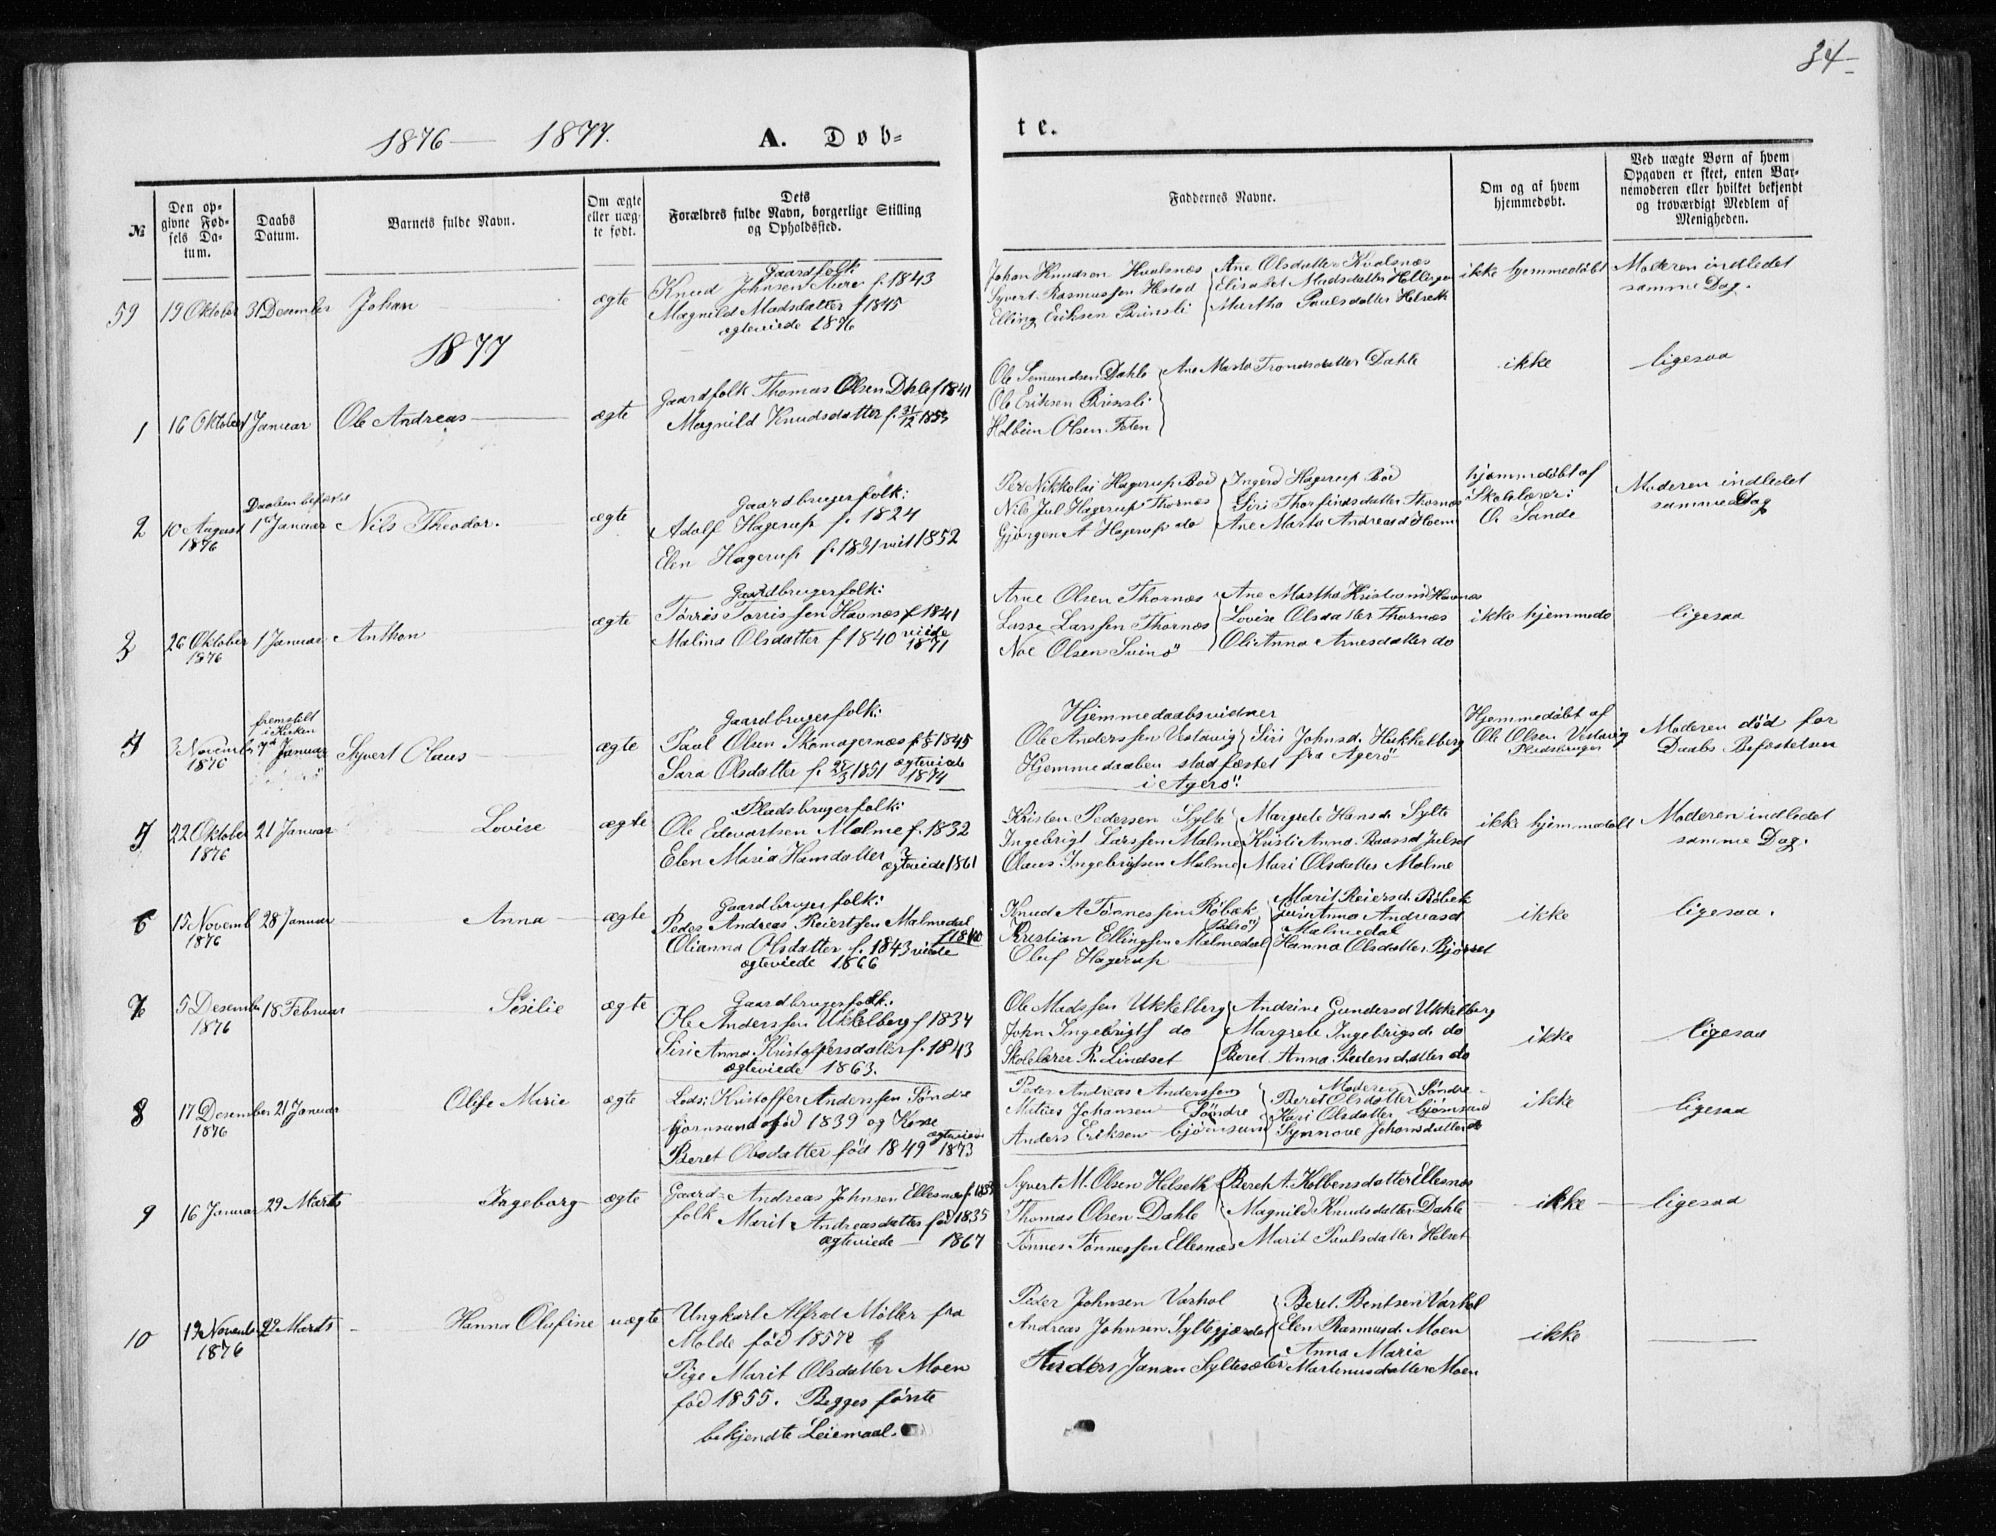 34
1876 — 1877. A. Døb=
te.
№
Den op=
givne Fød=
sels Da=
tum.
Daabs
Datum.
Barnets fulde Navn.
Om ægte
eller uæg=
te født.
Dets
Forældres fulde Navn, borgerlige Stilling
og Opholdssted.
Faddernes Navne.
Om og af hvem
hjemmedøbt.
Ved uægte Børn af hvem
Opgaven er skeet, enten Bar=
nemoderen eller hvilket bekjendt
og troværdigt Medlem af
Menigheden.
59 19 Oktober 31 Desember Johan ægte
Gaardfolk
Knud Johnsen Aure f. 1843
Magnild Madsdatter f 1845
ægteviede 1876
Johan Knudsen Hvalsnæs Ane Olsdatter Kvalsnæs
Syvert Rasmussen Hestad Elisabet Madsdatter
Elling Eriksen Brinsli Martha Paulsdatter Helseth
ikke hjemmedøbt
Moderen indledet
samme Dag.
1877
1 16 Oktober Januar Ole Andreas ægte
Gaardfolk Thomas Olsen Dhle f 1841
Magnild Knudsdatter f. 31/12 1853
Ole Semundsen Dahle Ane Marta Trondsdatter Dahle
Ole Eriksen Brinsli
Olsen Teten
ikke
ligesaa
2 10 August
1876
Daaben befæstet
1 Januar Nils Theodor. ægte
Gaardbrugerfolk:
Adolf Hagerup f. 1824
Elen Hagerup f. 1831 viet 1852
Per Nikkolai Hagerup Boe Ingerd Hagerup Boe
Nils Jul Hagerup Thornæs Siri Thorfindsdatter Thornæs
Gjørgen A Hagerup do Ane Marta Andreasd Hoem
hjemmedøbt af
Skolelærer:
O. Sande
Moderen indledet
samme Dag
3 26 Oktober
1876
1 Januar Anthon ægte
Gaardbrugerfolk:
Tørris Torrissen Havnæs f 1841
Malina Olsdatter f 1840 viede
1871
Arne Olsen Thornæs Ane Martha
Lasse Larssen Thornæs Lovise Olsdatter Thornæs
Noe Olsen Svinø Oli Anna Arnesdatter do
ikke hjemmedø
ligesaa
4 3 November
1876
fremstilt
i Kirken
7de Januar Syvert Olaus ægte
Gaardbrugerfolk:
Paul Olsen Skomagernæs f. 1845
Sara Olsdatter f. 1851 ægteviede
1874
Hjemmedaabsvidner
Ole Anderssen Vestavig Siri Johnsd. Hukkelberg
Hjemmedaaben stadfæstet fra Agerø
i Agerø.
Hjemmedøbt af
Ole Olsen Vestavig
Pladsbruger
Moderen død før
Daabs Befæstelsen
5 22 Oktober
1876
21 Januar Lovise ægte
Pladsbrugerfolk:
Ole Edvartsen Malme f. 1832
Elen Maria Hansdatter ?
ægteviede 1861
Kristen Pedersen Sylte Margrete Hansd. Sylte
Ingebrigt Larssen Malme Kristi Anna Baarsd Julset
Olaus Ingebrigtsen Malme Mari Olsdatter Malme
ikke hjemmedøbt
Moderen indledet
samme Dag.
6 15 Novemb
1876
28 Januar Anna ægte
Gaardbrugerfolk:
Peder Andreas Reiertsen Malmedal
f 1840
Olianna Olsdatter f. 1843 viede
ægteviede 1866
Knud A Tønnessen Røbæk Marit Reiersd. Røbek
Kristian Ellingsen Malmedal Siri Anna Andreasd.
Malmedal
Oluf Hagerup Hanna Olsdatter Bjørset
ikke
ligesaa.
7 5 Desember
1876
18 Februar Sesilie ægte
Gaardbrugerfolk:
Ole Anderssen Ukkelberg f 1834
Siri Anna Kristoffersdatter f. 1843
ægteviede 1863.
Ole Madssen Ukkelberg Andrine Gundersd Ukkelberg
John Ingebrigts do Margrete Ingebrigsd. do
Skolelærer R. Lindset Beret Anna Pedersdatter do
ikke
ligesaa
8 17 Desember
1876
21 Januar Olife Marie ægte
Lods: Kristoffer Anderssen Søndre
bjørnsund født 1839 og Kone
ægteviede
Beret Olsdatter fød 1849 1873
Peder Andreas Anderssen Moderen
Beret Olsdatter Søndre
Mikkel Johansen Søndre Kari Olsdatter bjørnsund
Anders Eriksen bjørnsund Synnove Johansdatter do
ikke
ligesaa
9 16 Januar 29 Marts Ingeborg ægte
Gaard= Andreas Johnsen Ellesnæs
folk Marit Andreasdatter fød 1835
ægteviede — 1867
Syvert M. Olsen Helseth Beret A. Kolbensdatter Ellesnæs
Thomas Olsen Dahle Magnild Knudsdatter Dahle
Tønnes Tønnessen Ellesnæs Marit Paulsdatter Helset
ikke
ligesaa
10 19 Novemb
1876
29 Marts Hanna Olafine uægte
Ungkarl Alfred Møller fra
Molde fød 1857
Pige Marit Olsdatter Moen
fød 1855. Begges første
bekjendte Leiemaal.
Peder Johnsen Varhol Beret Bentsen Varhol
Andreas Johnsen Syltegjærdet Elen Rasmusd. Moen
Anna Marie
Anders Jansen Syltesæter Martinusdatter Moen
ikke